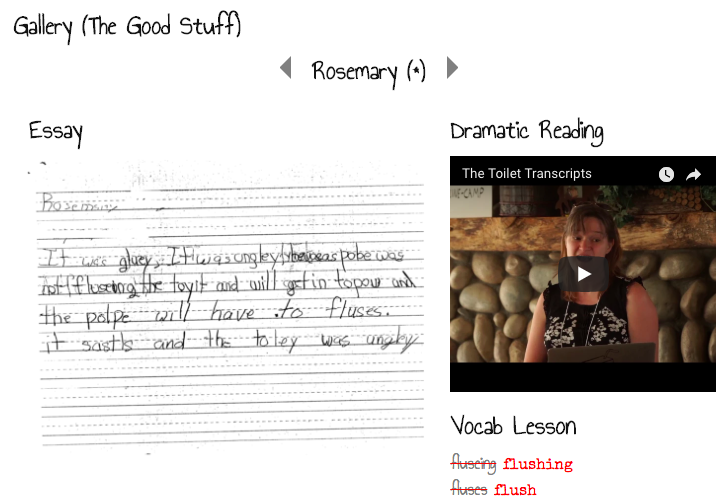 Gallery (The Good Stuff)
Rosemary (*)
Essay
Rosemary
It was gluey. It was ungley
pobe was
not fluseing the toyit and will get in topour and
the polpe will have to fluses.
it sastls and the toley was angley
Dramatic Reading
The Toilet Transcripts
Vocab Lesson
fluseing flushing
fluses flush